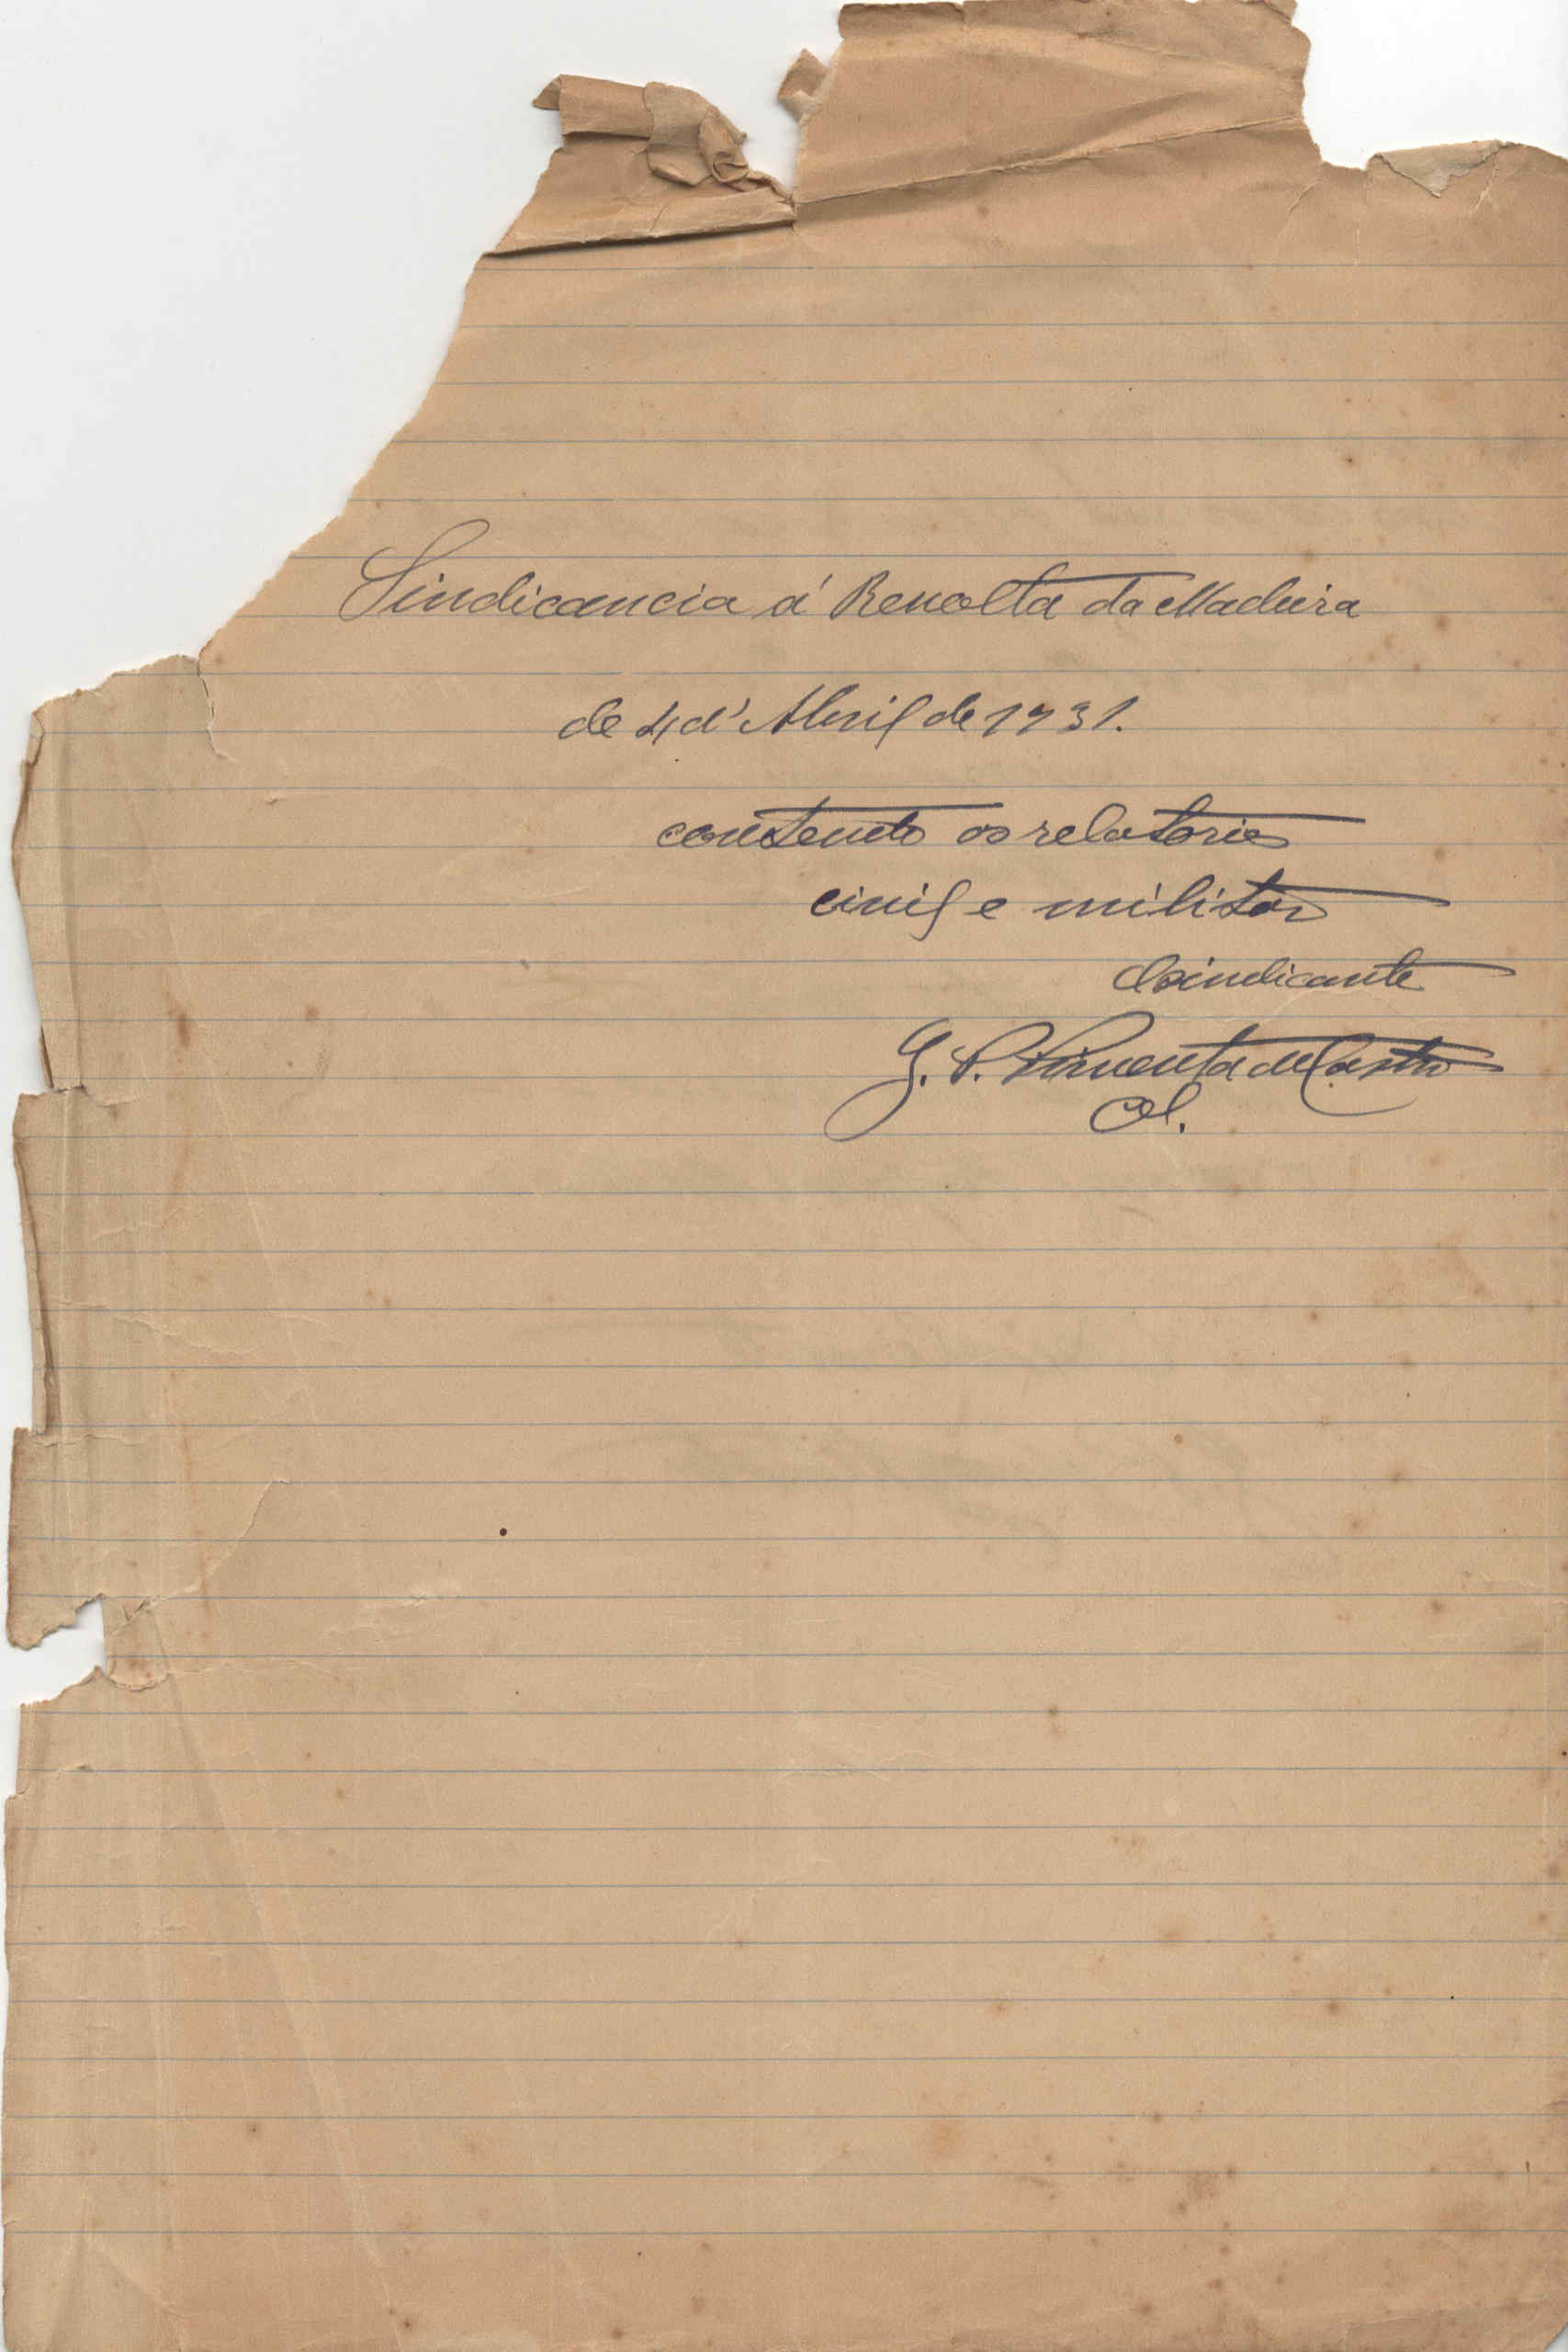 Sindicancia á Revolta da Madeira
de 4 d'Abril de 1931.
contendo os relatorios
civil e militar
O sindicante
G. P. Pimenta de Castro
Col.